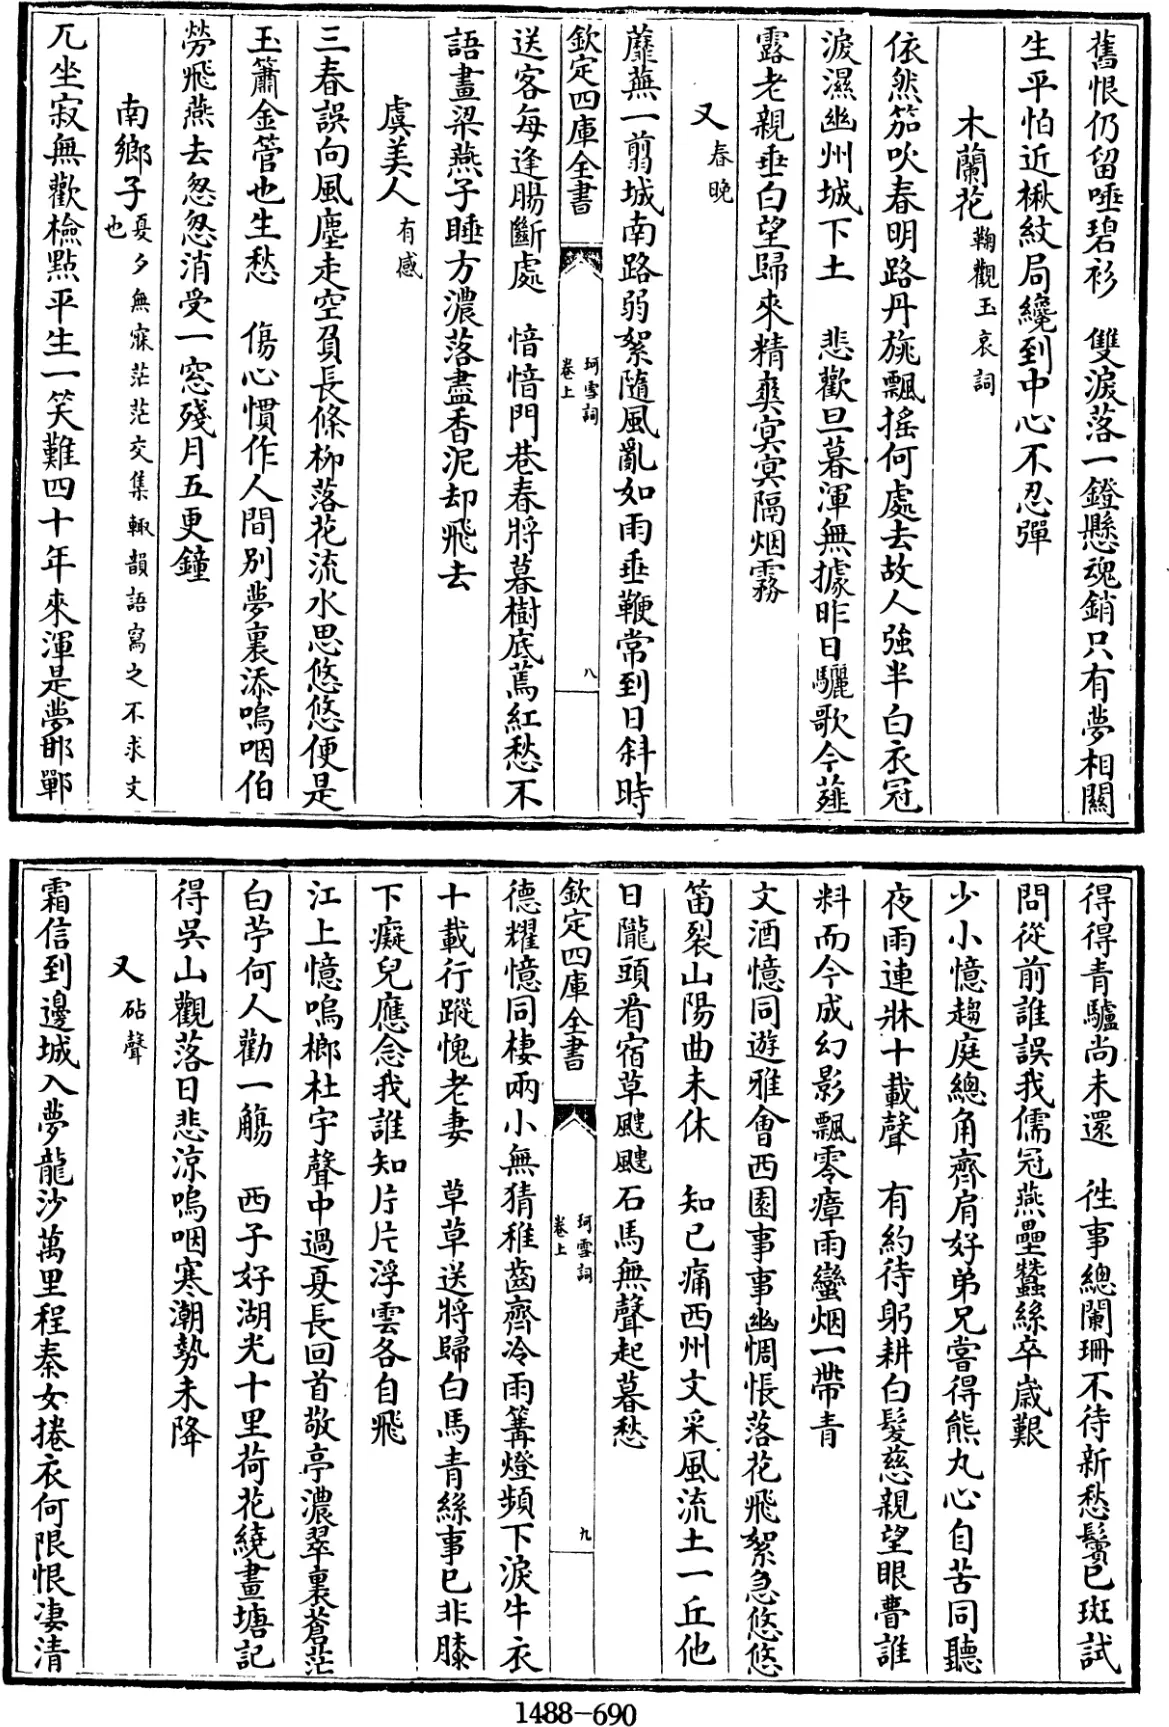 舊恨仍留唾碧衫　雙淚落一鐙懸魂銷只有夢相關
生平怕近楸紋局纔到中心不忍彈
木蘭花鞠觀玉哀詞
依然笳吹春明路丹旐飄搖何處去故人強半白衣冠
淚濕幽州城下土　悲歡旦暮渾無據昨日驪歌今薤
露老親垂白望歸來精爽冥冥隔烟霧
又春晚
蘼蕪一翦城南路弱絮隨風亂如雨垂鞭常到日斜時
欽定四庫全書　珂雪詞卷上　八
送客每逢腸斷處　愔愔門巷春將暮樹底蔫紅愁不
語畫梁燕子睡方濃落盡香泥却飛去
虞美人有感
三春誤向風塵走空負長條柳落花流水思悠悠便是
玉簫金管也生愁　傷心慣作人間別夢裏添嗚咽伯
勞飛燕去怱怱消受一窓殘月五更鐘
南鄉子夏夕無寐茫茫交集輙韻語寫之不求文也
兀坐寂無歡檢點平生一笑難四十年來渾是夢邯鄲
得得青驢尚未還　徃事總闌珊不待新愁鬢已斑試
問從前誰誤我儒冠燕壘蠶絲卒歲艱
少小憶趨庭總角齊肩好弟兄嘗得熊丸心自苦同聽
夜雨連牀十載聲　有約待躬耕白髮慈親望眼瞢誰
料而今成幻影飄零瘴雨蠻烟一帶青
文酒憶同遊雅會西園事事幽惆悵落花飛絮急悠悠
笛裂山陽曲未休　知已痛西州文采風流土一丘他
日隴頭看宿草颼颼石馬無聲起暮愁
欽定四庫全書　珂雪詞卷上　九
德耀憶同棲兩小無猜稚齒齊冷雨篝燈頻下淚牛衣
十載行蹤愧老妻　草草送將歸白馬青絲事已非膝
下癡兒應念我誰知片片浮雲各自飛
江上憶嗚榔杜宇聲中過夏長回首敬亭濃翠裏蒼茫
白苧何人勸一觴　西子好湖光十里荷花繞畫塘記
得吳山觀落日悲涼嗚咽寒潮勢未降
又砧聲
霜信到邊城入夢龍沙萬里程秦女捲衣何限恨凄清
1488-690